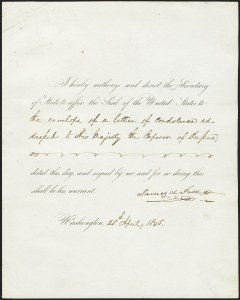 I hereby authorize and direct the Secretary
of State to affix the Seal of the United States to
the envelope of a letter of condolence ad-
dressed to His Majesty the Emperor of
dated this day, and signed by me and for so doing this
shall be his warrant.
James K. Polk
Washington, 28th April, 1846.